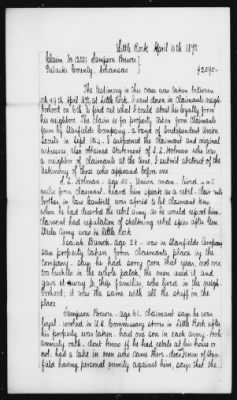 Little Rock April 10th 1872.
Claim No 2551 Sampson Brown }
Pulaski County, Arkansas } $2090.
The testimony in this case was taken between
the 4th April 1872, at Little Rock. I went down in Claimants neigh-
borhood on 6th to find out what I could about his loyalty from
his neighbors. The claim is for property taken from Claimants
farm by Stanfields Company - a band of Independent Union
Scouts in Sept 1864. I subpoenaed the claimant and original
witnesses also obtained statement of S. L. Holman who was
a neighbor of claimants at the time. I submit abstract of the
testimony of those who appeared before me.
S. L. Holman - age 65 - Union man - lived
miles from claimant. Heard him spoken as a rebel - clair
brother in law Cantrell, was afraid to let claimant know
when he had deserted the rebel army as he would report him.
claimant had reputation of sheltering rebel spies after Gen
Steeles Army was in Little Rock
Isaiah Branch - age 28 - was in Stanfields Company
saw property taken from claimants place by the
Company - they so had some corn that year, not over
ten bushels in the whole patch, the men used it and
gave it away to their families who lived in the neigh-
borhood; it was the same with all the stuff on the
place
Sampson Brown - age 61. Claimant says he was
loyal - worked in U.S. Commissary store in Little Rock after
his property was taken. had one son in each army - took
amnesty oath. dont know if he had rebels at his house or
not. had a talk in men who came there. does know of Stan-
field having personal enmity against him, says that the